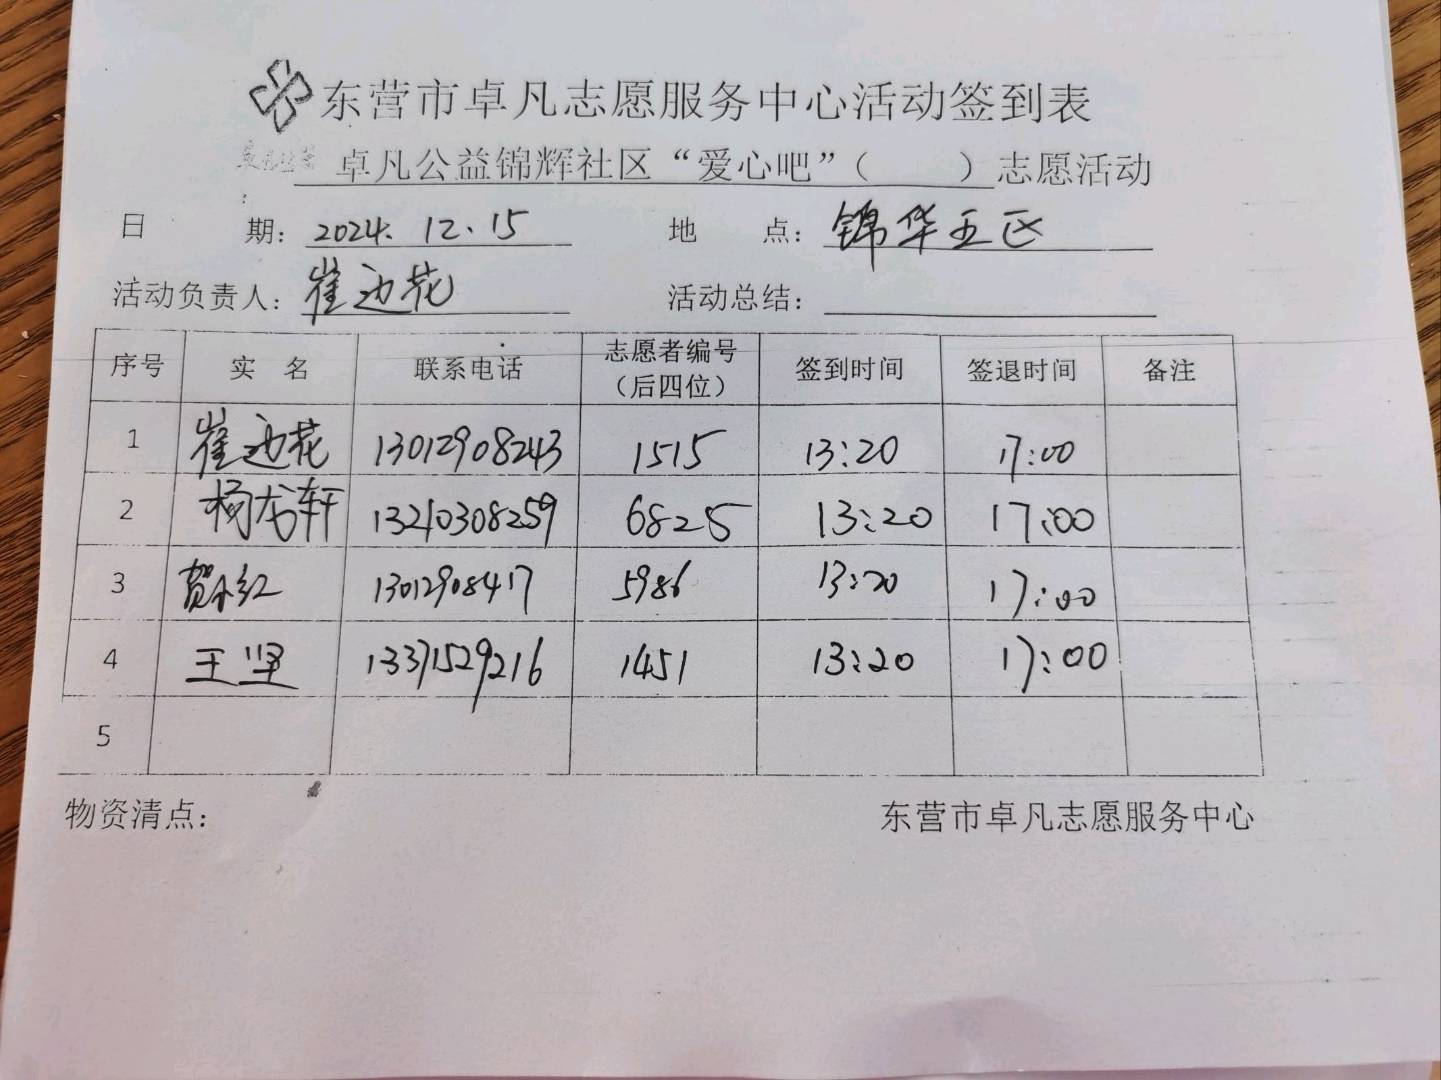 东营市卓凡志愿服务中心活动签到表
卓凡公益锦辉社区“爱心吧”（ ）志愿活动
日 期：2024.12.15 地 点：锦华五区
活动负责人：崔迎花 活动总结：
序号 实 名 联系电话 志愿者编号（后四位） 签到时间 签退时间 备注
1 崔迎花 13012908243 1515 13:20 17:00
2 杨龙轩 13210308259 6825 13:20 17:00
3 贺小红 13012908417 5986 13:20 17:00
4 王坚 13371529216 1451 13:20 17:00
5
物资清点： 东营市卓凡志愿服务中心